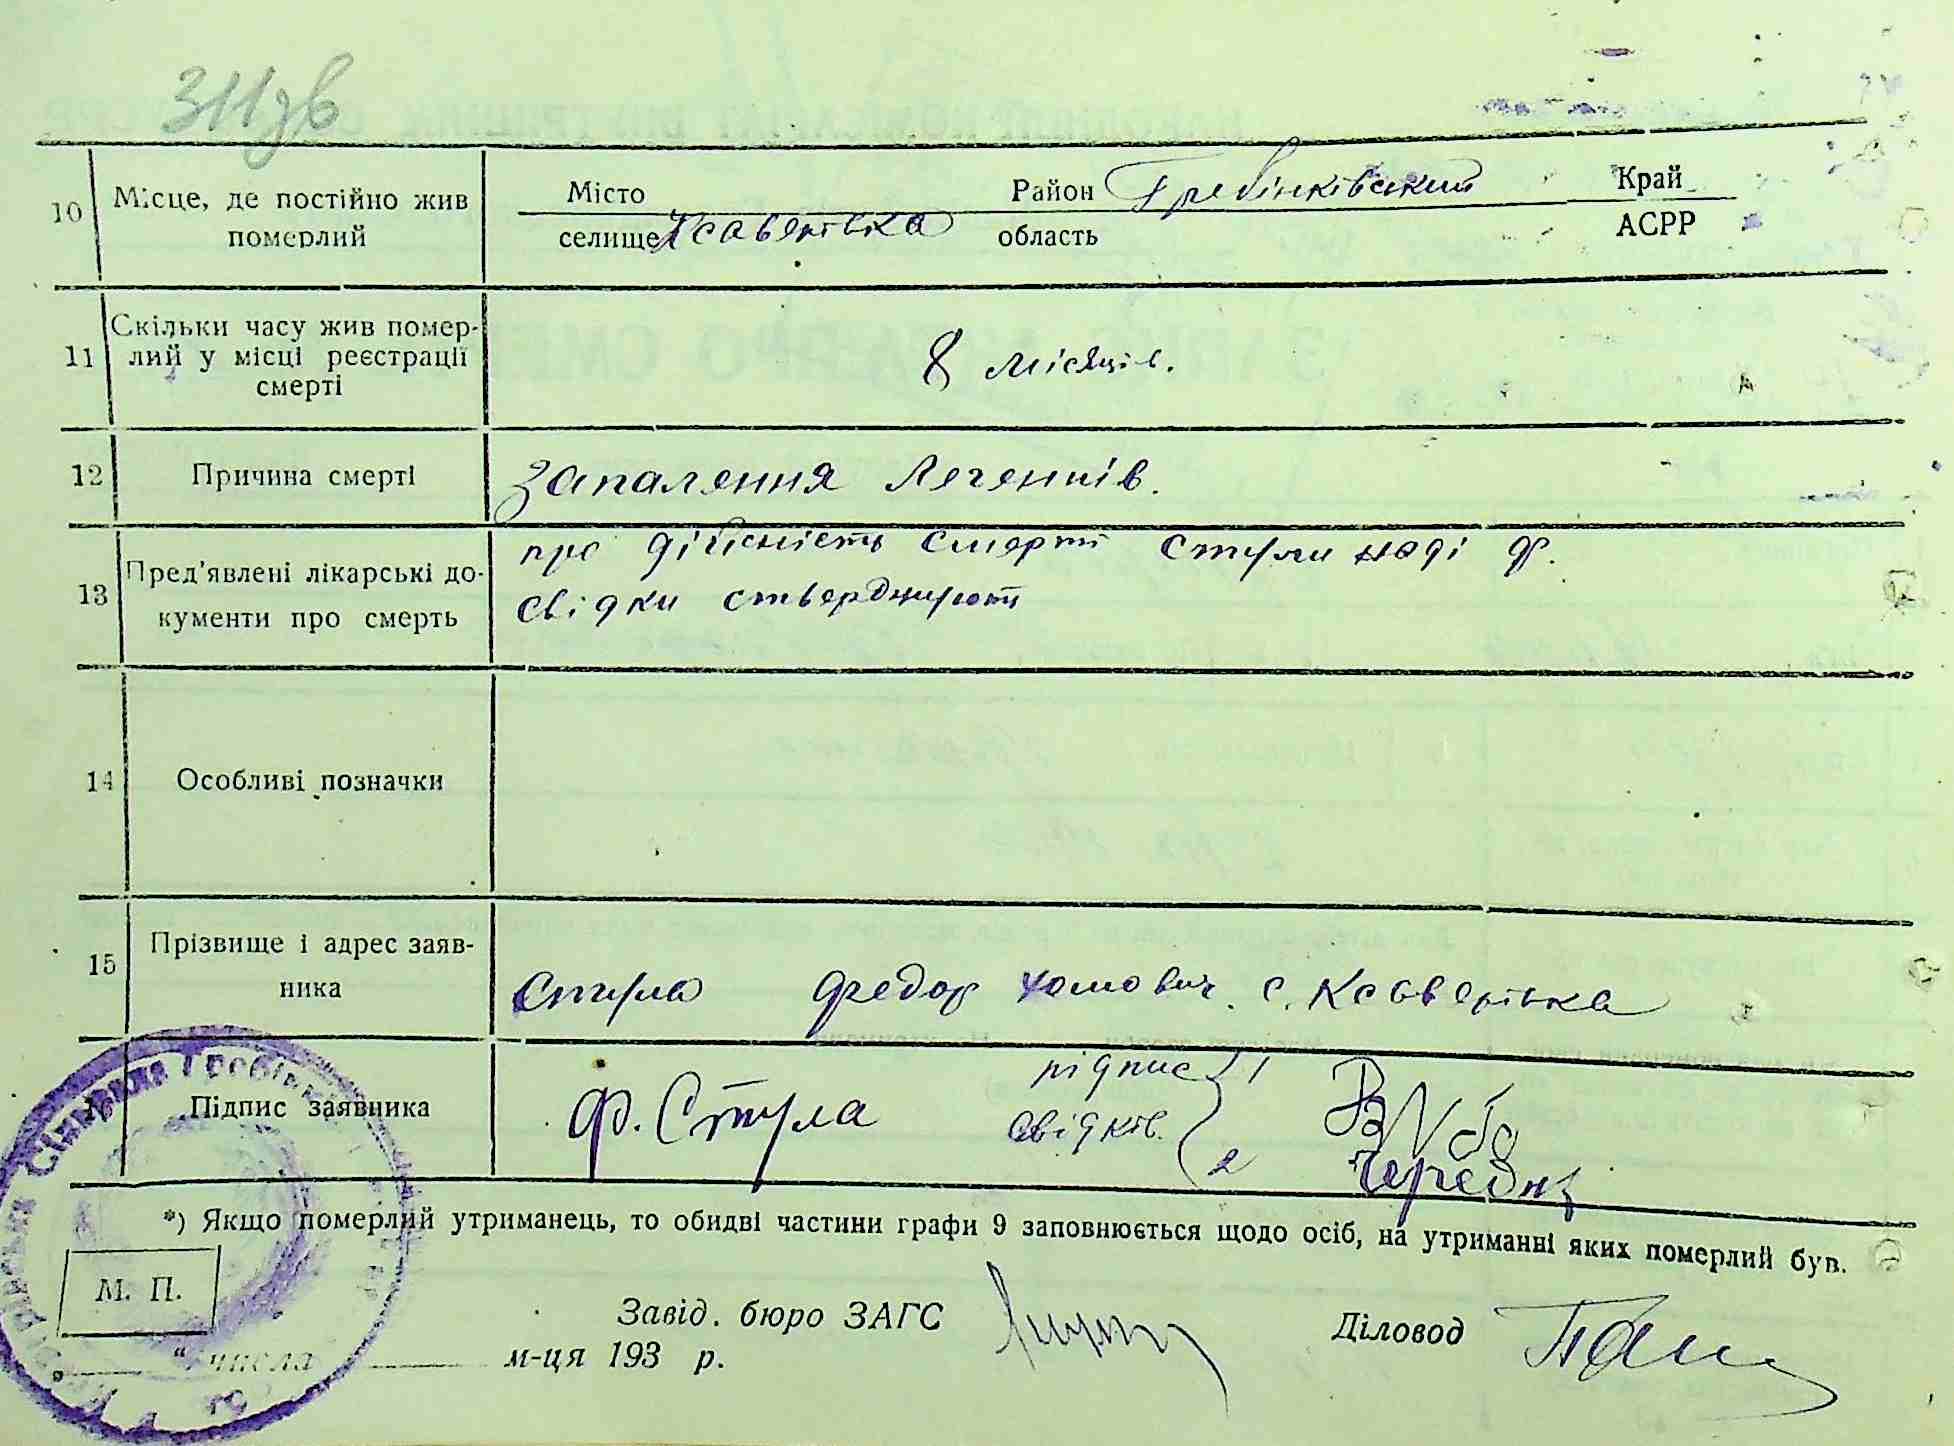 311зв
10 Місце, де постійно жив померлий
Місто Район Гребінківський Край
селище Ксаверівка область АСРР
11 Скільки часу жив померлий у місці реєстрації смерті
8 місяців.
12 Причина смерті Запалення Легенпів.
13 Пред'явлені лікарські документи про смерть
про дійсність смерті Стули наді Ф.
свідки стверджують
14 Особливі позначки
15 Прізвище і адрес заявника
Стула Федор Хомович. с. Ксаверівка
16 Підпис заявника Ф. Стула підпис свідків. 1
2
*) Якщо померлий утриманець, то обидві частини графи 9 заповнюється щодо осіб, на утриманні яких померлий був.
М. П.
Завід. бюро ЗАГС Діловод
„ “ числа м-ця 193 р.